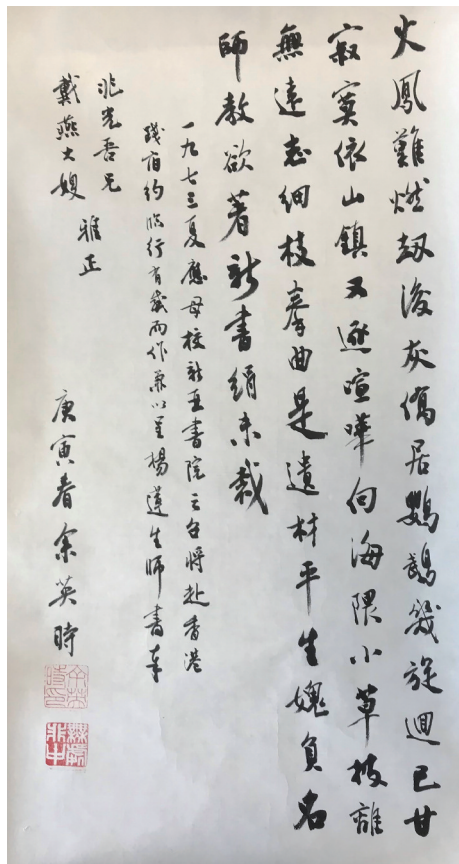 火鳳難燃劫後灰僑居鸚鵡幾旋迴已甘
寂寞依山鎮又逐喧嘩向海隈小草披離
無遠志細枝拳曲是遺材平生愧負名
師教欲著新書絹未裁
一九七三夏應母校新亞書院之召將赴香港
踐宿約臨行有感而作兼以呈楊蓮生師書奉
兆光吾兄
戴燕大嫂 雅正
庚寅春余英時
余英時印
無處非中